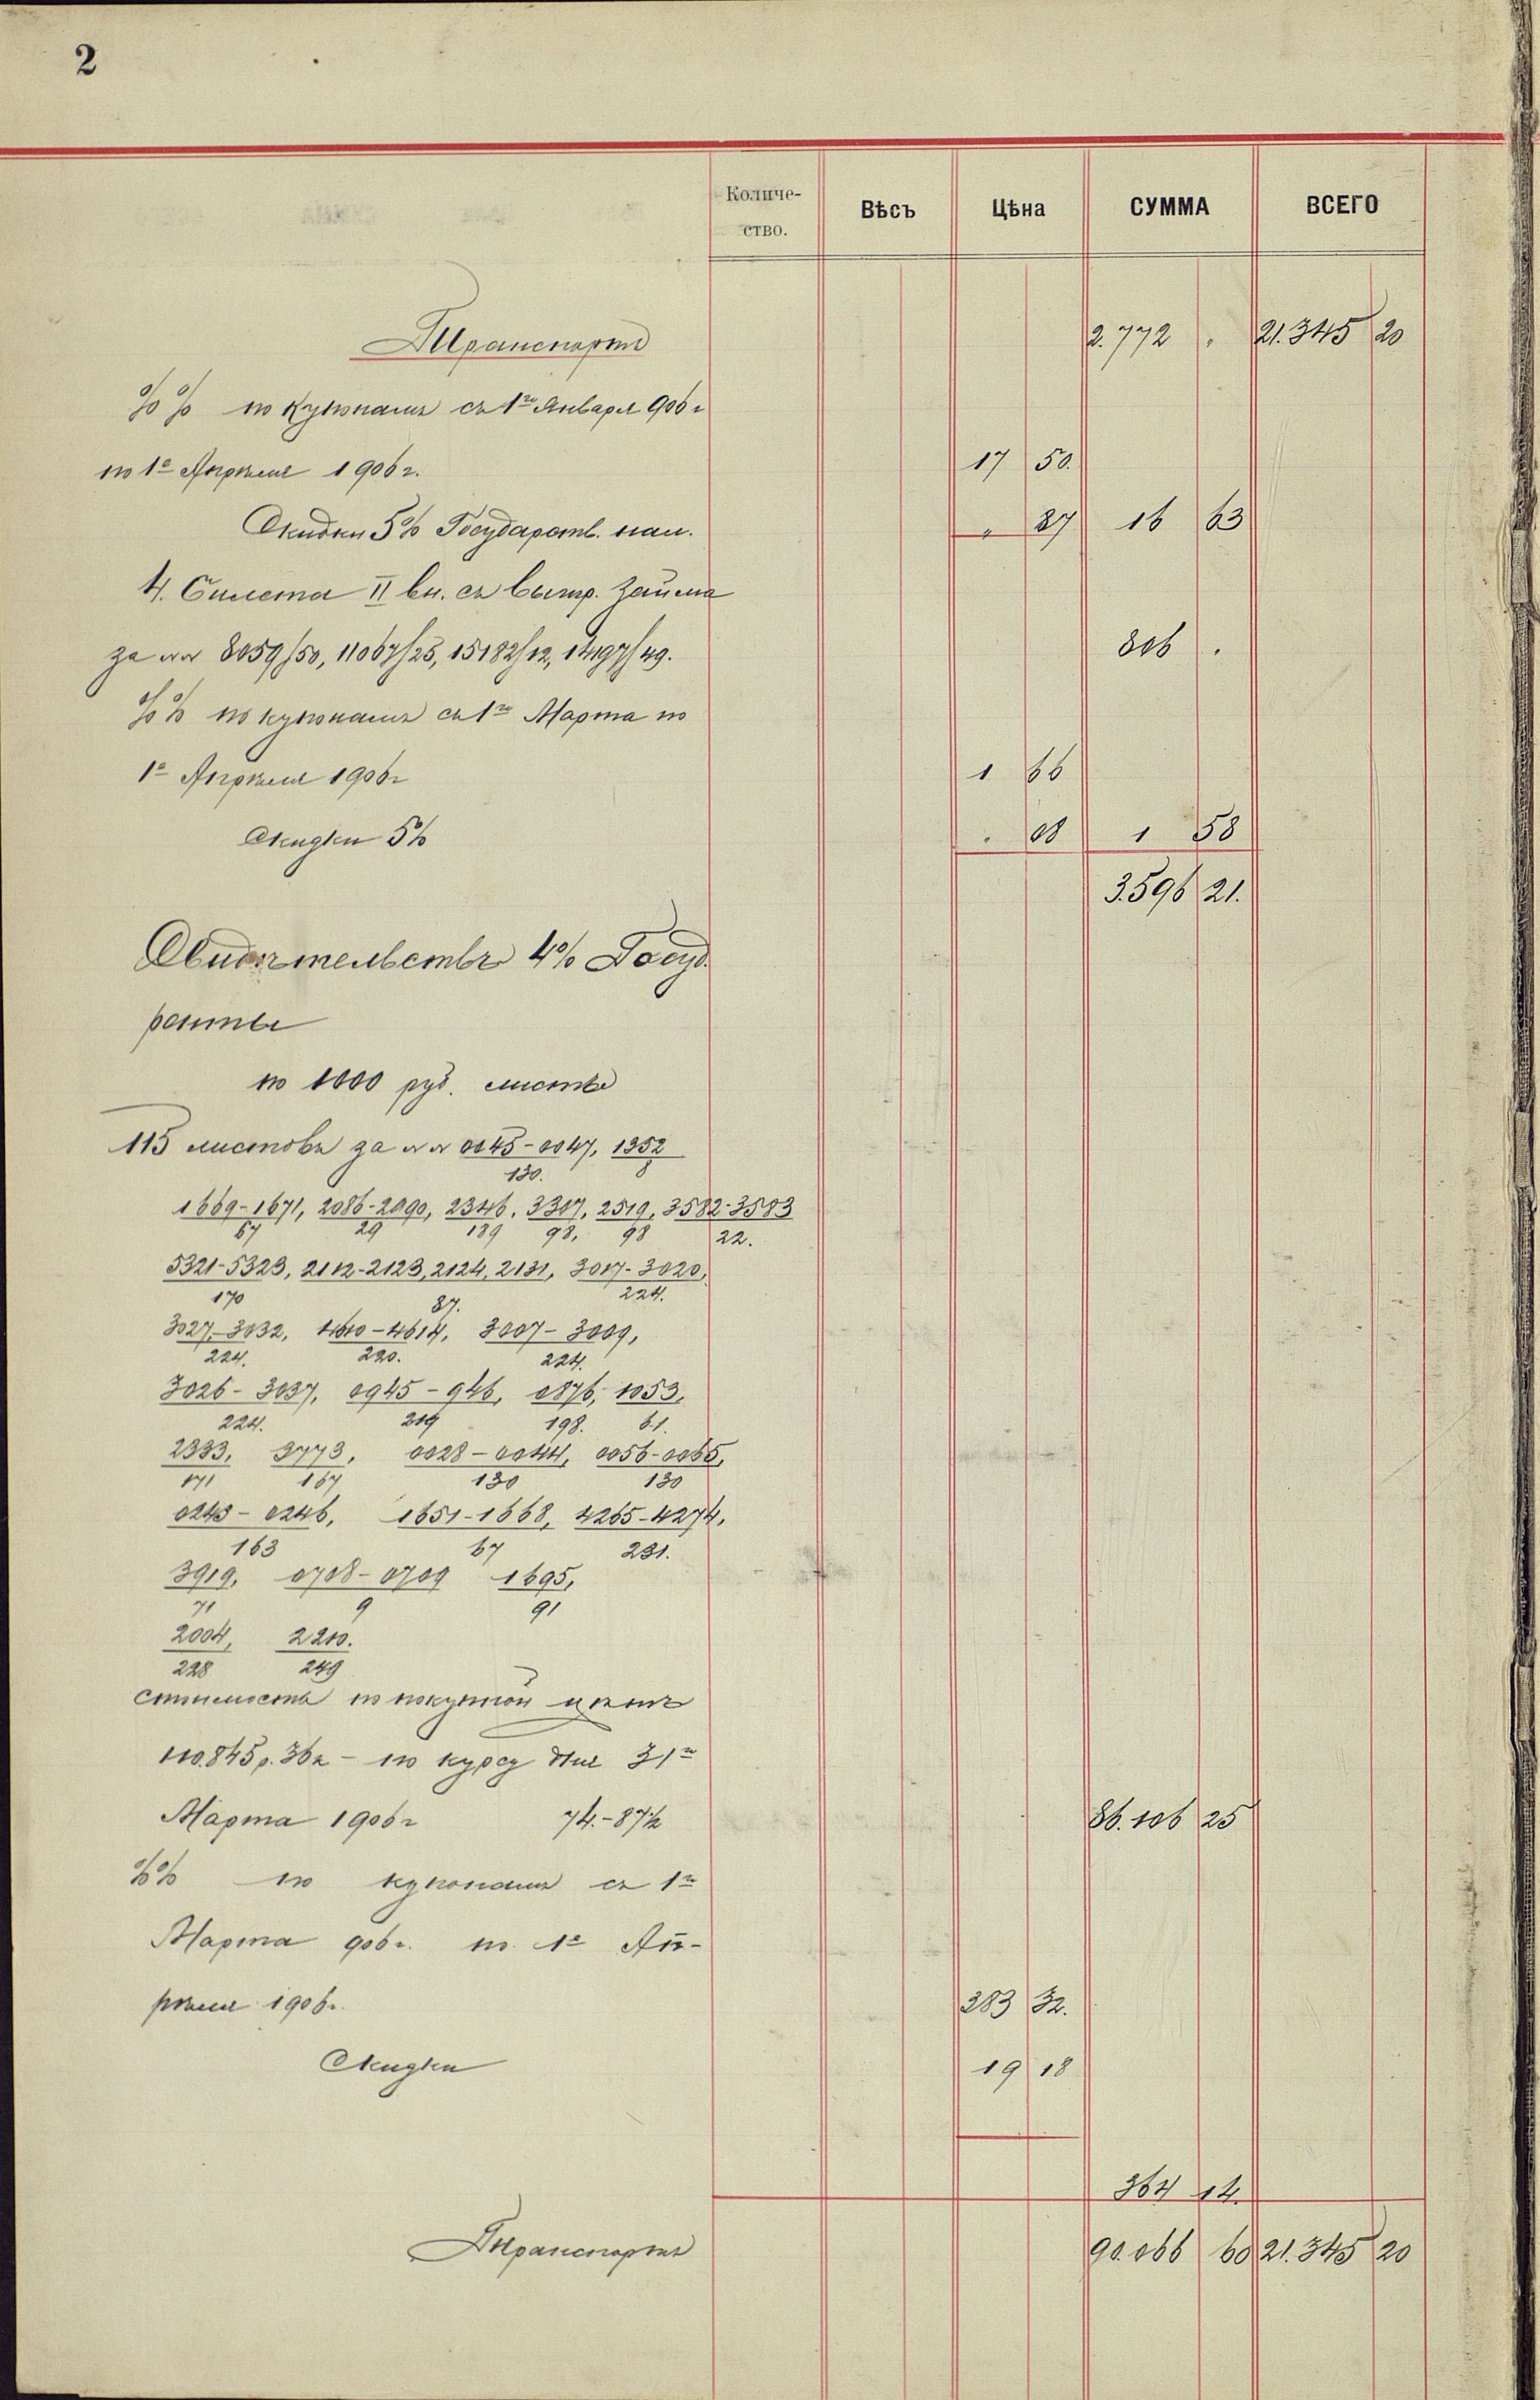 2
Количе-
ство.
Вѣсъ
Цѣна
СУММА
ВСЕГО
Транспортъ 2.772 " 21.345 20
%% по купонамъ съ 1го Января 906 г
по 1е Апрѣля 1906 г. 17 50.
Скидки 5% Государств. нал. " 87 16 63
4. билета II вн. съ выигр. займа
за №№ 8059/50, 11067/25, 15182/12, 14197/49. 806 .
%% по купонамъ съ 1го Марта по
1е Апрѣля 1906 г 1 66
Скидки 5% . 08 1 58
3.596 21.
Свидѣтельствъ 4% Госуд.
ренты
по 1000 руб. листъ
115 листовъ за №№ 0045-0047, 1352
130. 8
1669-1671, 2086-2090, 2346, 3307, 2519, 3582-3583
67 29 189 98, 98 22.
5321-5323, 2112-2123, 2124, 2131, 3017-3020,
170 87. 224.
3027-3032, 4610-4614, 3007-3009,
224. 220. 224.
3026-3037, 0945-946, 0876, 1053,
224. 219 198. 61.
2333, 3773, 0028-0044, 0056-0065,
171 167 130 130
0243-0246, 1651-1668, 4265-4274,
163 67 231.
3919, 0708-0709 1695,
71 9 91
2004, 2210.
228 249
стоимость по покупной цѣнѣ
110.845 р. 36 к - по курсу дня 31го
Марта 1906 г 74.-87½ 86.106 25
%% по купонамъ съ 1го
Марта 906 г. по 1е Ап-
рѣля 1906 г. 383 32.
Скидки 19 18
364 14.
Транспортъ 90.066 60 21.345 20